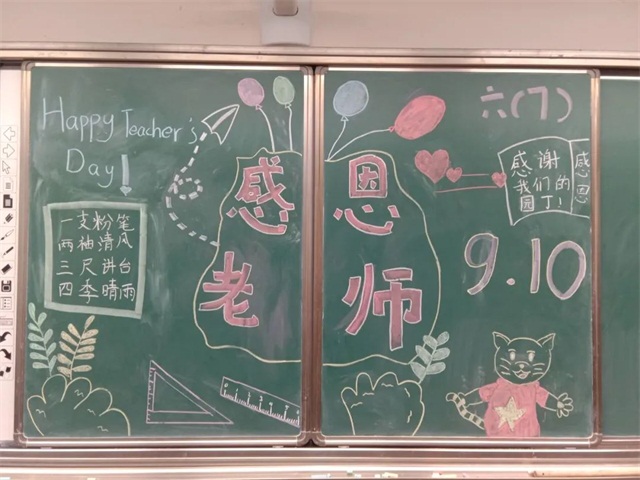 Happy Teacher's
Day!
一支粉笔
两袖清风
三尺讲台
四季晴雨
感恩
老师
六(7)
感谢
我们的
园丁!
感
恩
9.10